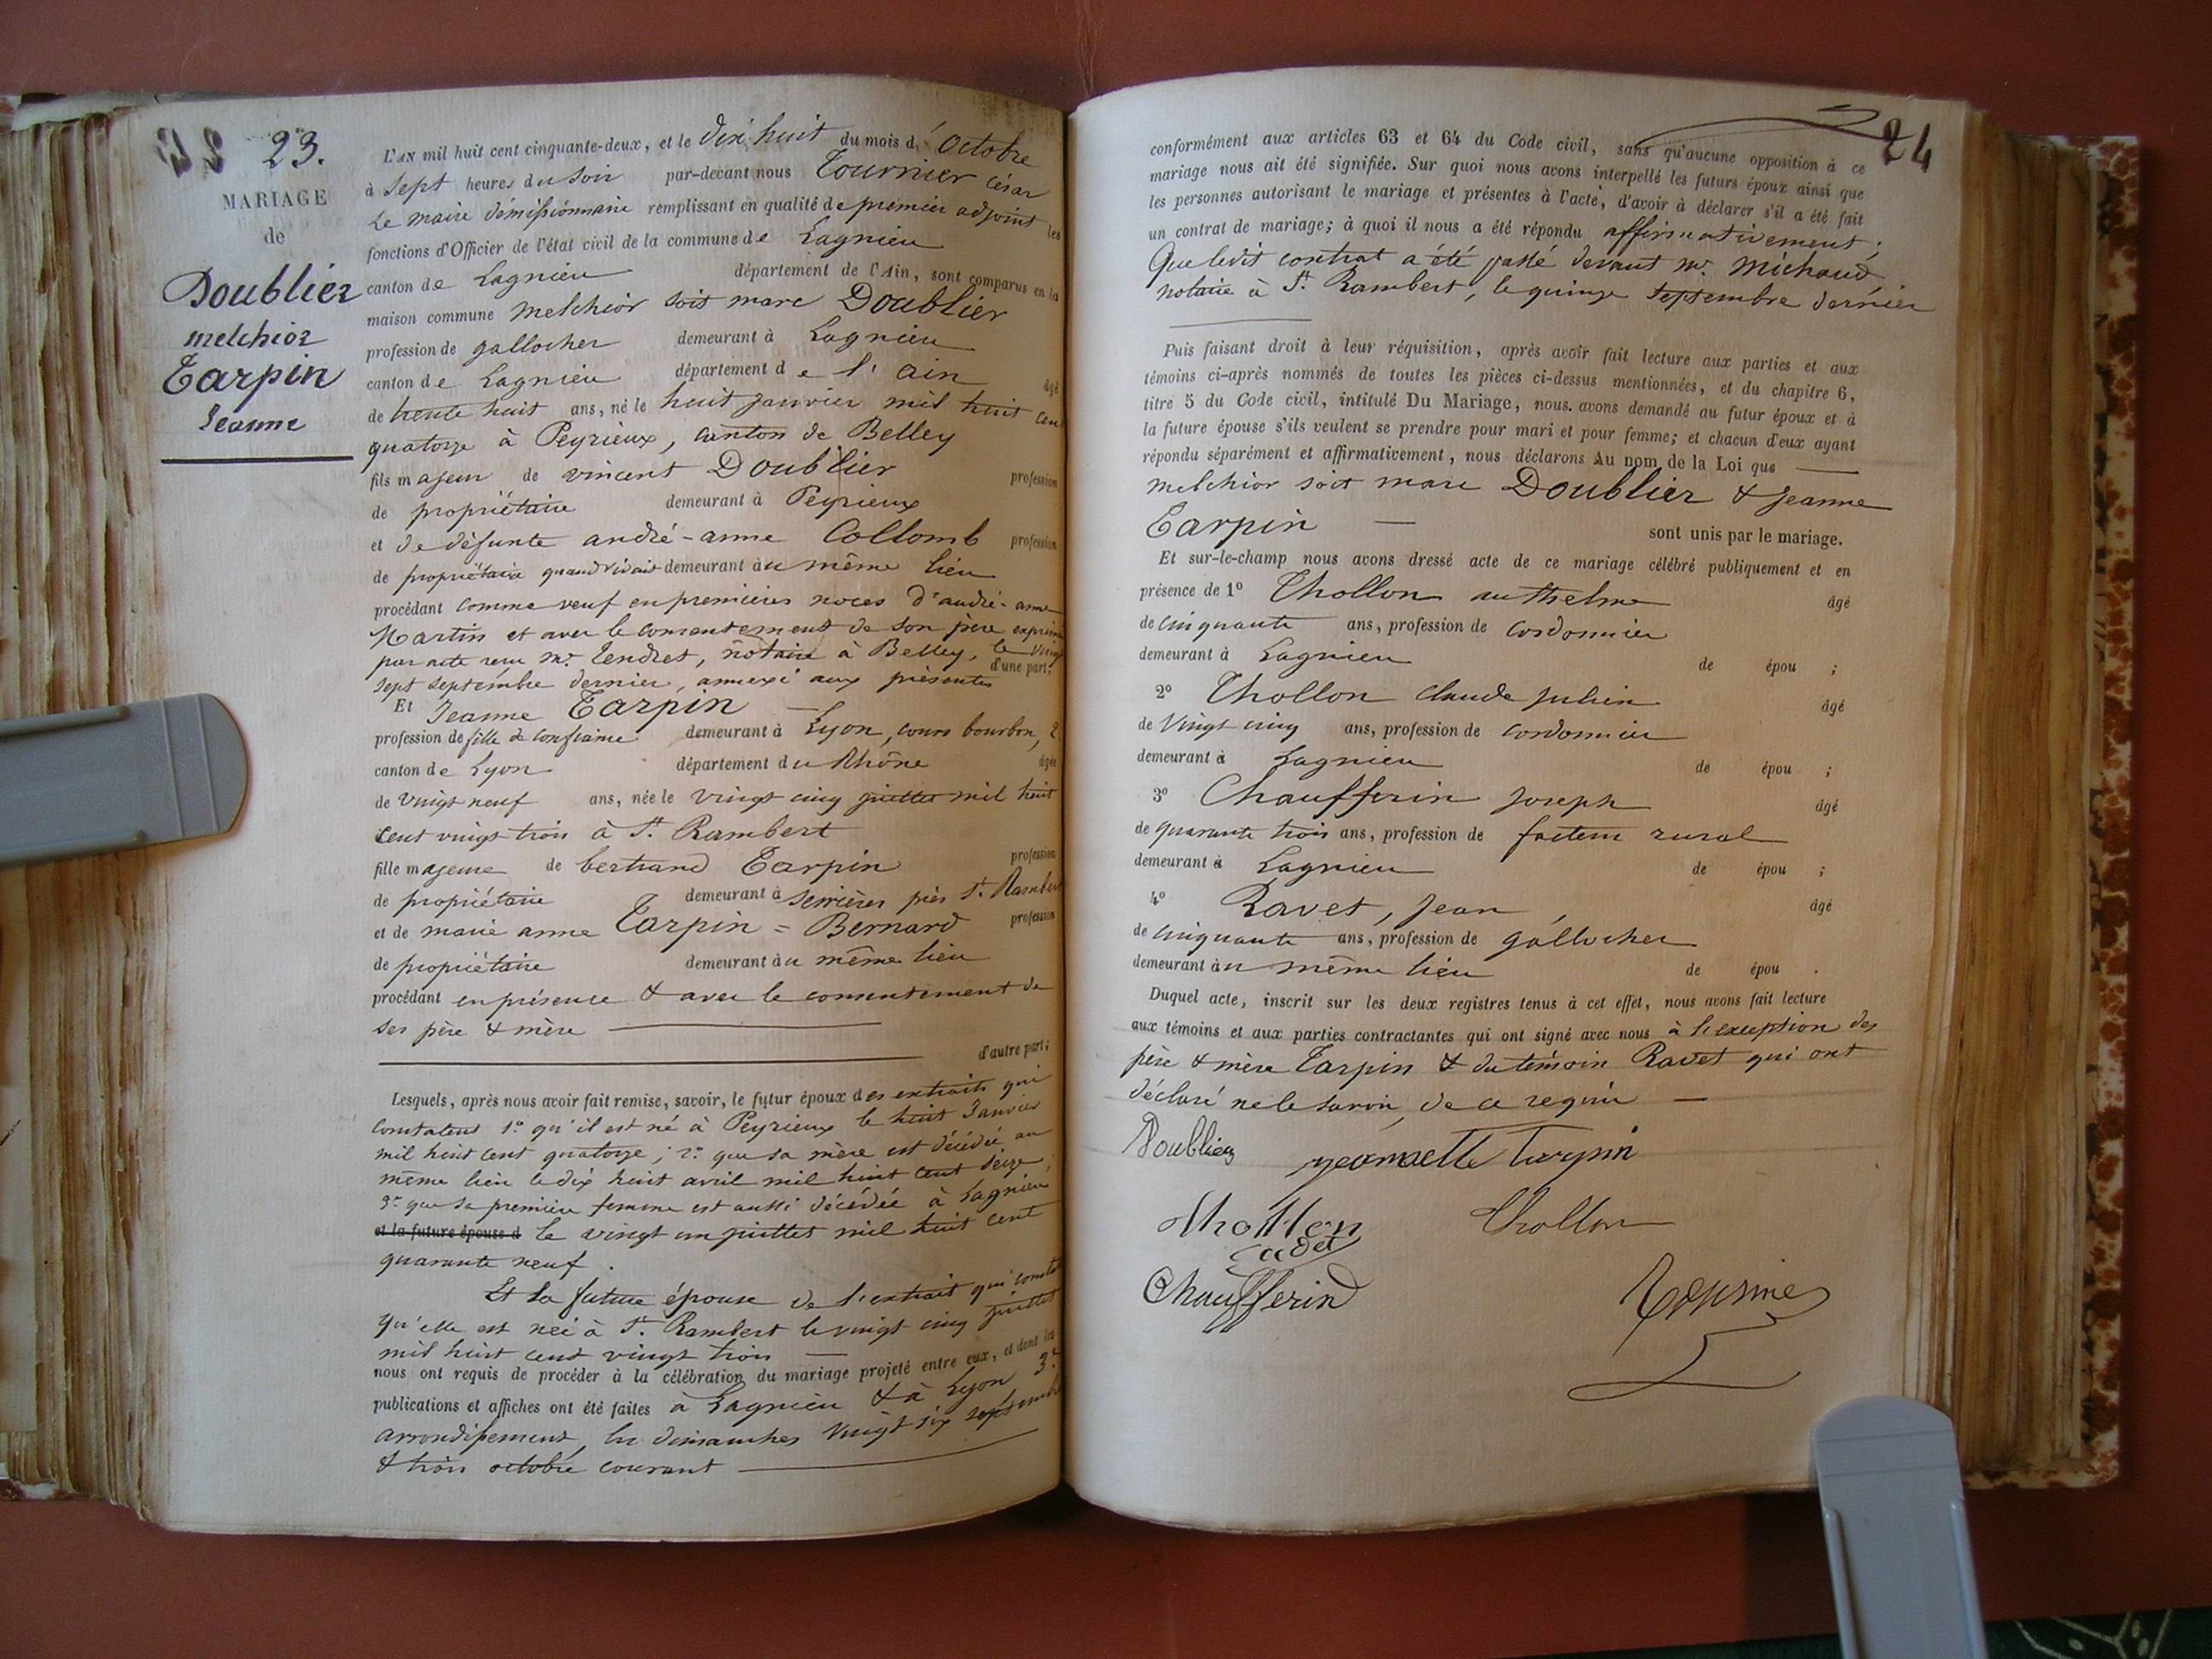 23.
MARIAGE
de
Doublier
melchior
Tarpin
Jeanne
L'an mil huit cent cinquante-deux, et le dix huit du mois d' Octobre
à sept heures du soir par-devant nous Tournier César
le maire démissionnaire remplissant en qualité de premier adjoint les
fonctions d'Officier de l'état civil de la commune de Lagnieu
canton de Lagnieu département de l'Ain, sont comparus en la
maison commune Melchior soit marc Doublier
profession de gallocher demeurant à Lagnieu
canton de Lagnieu département de l'ain âgé
de trente huit ans, né le huit janvier mil huit cent
quatorze à Peyrieux, canton de Belley
fils majeur de vincent Doublier profession
de propriétaire demeurant à Peyrieux
et de défunte andré-anne Collomb profession
de propriétaire quand vivait demeurant au même lieu
procédant comme veuf en premières noces d'andré-anne
Martin et avec le consentement de son père exprimé
par acte reçu Mr. Tendret, notaire à Belley, le vingt
sept septembre dernier, annexé aux présentes d'une part;
Et Jeanne Tarpin
profession de fille de confiance demeurant à Lyon, cours bourbon, 2
canton de Lyon département du Rhône âgée
de vingt neuf ans, née le vingt cinq juillet mil huit
cent vingt trois à St. Rambert
fille majeure de bertrand Tarpin profession
de propriétaire demeurant à serrières près St. Rambert
et de marie anne Tarpin = Bernard profession
de propriétaire demeurant au même lieu
procédant en présence & avec le consentement de
ses père & mère
d'autre part;
Lesquels, après nous avoir fait remise, savoir, le futur époux des extraits qui
constatent 1o. qu'il est né à Peyrieux le huit Janvier
mil huit cent quatorze; 2o. que sa mère est décédée au
même lieu le dix huit avril mil huit cent seize;
3o. que sa première femme est aussi décédée à Lagnieu
et la future épouse d le vingt un juillet mil huit cent
quarante neuf.
Et la future épouse de l'extrait qui constate
qu'elle est née à St. Rambert le vingt cinq juillet
mil huit cent vingt trois
nous ont requis de procéder à la célébration du mariage projeté entre eux, et dont les
publications et affiches ont été faites à Lagnieu & à Lyon 3e.
arrondissement, les dimanches vingt six septembre
& trois octobre courant
24
conformément aux articles 63 et 64 du Code civil, sans qu'aucune opposition à ce
mariage nous ait été signifiée. Sur quoi nous avons interpellé les futurs époux ainsi que
les personnes autorisant le mariage et présentes à l'acte, d'avoir à déclarer s'il a été fait
un contrat de mariage; à quoi il nous a été répondu affirmativement;
Que ledit contrat a été passé devant Mr. Michaud,
notaire à St. Rambert, le quinze septembre dernier
Puis faisant droit à leur réquisition, après avoir fait lecture aux parties et aux
témoins ci-après nommés de toutes les pièces ci-dessus mentionnées, et du chapitre 6,
titre 5 du Code civil, intitulé Du Mariage, nous avons demandé au futur époux et à
la future épouse s'ils veulent se prendre pour mari et pour femme; et chacun d'eux ayant
répondu séparément et affirmativement, nous déclarons Au nom de la Loi que
Melchior soit marc Doublier & Jeanne
Tarpin sont unis par le mariage.
Et sur-le-champ nous avons dressé acte de ce mariage célébré publiquement et en
présence de 1o Thollon anthelme âgé
de cinquante ans, profession de cordonnier
demeurant à Lagnieu de épou ;
2o Thollon claude julien âgé
de vingt cinq ans, profession de cordonnier
demeurant à Lagnieu de épou ;
3o Chaufferin joseph âgé
de quarante trois ans, profession de facteur rural
demeurant à Lagnieu de épou ;
4o Ravet, jean âgé
de cinquante ans, profession de gallocher
demeurant au même lieu de épou .
Duquel acte, inscrit sur les deux registres tenus à cet effet, nous avons fait lecture
aux témoins et aux parties contractantes qui ont signé avec nous à l'exception des
père & mère Tarpin & du témoin Ravet qui ont
déclaré ne le savoir, de ce requis
Doublier jeannette Tarpin
Thollon Thollon
cadet
Chaufferin